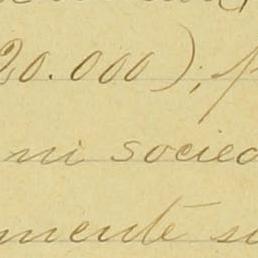 20.000); p
ni socied
mente su